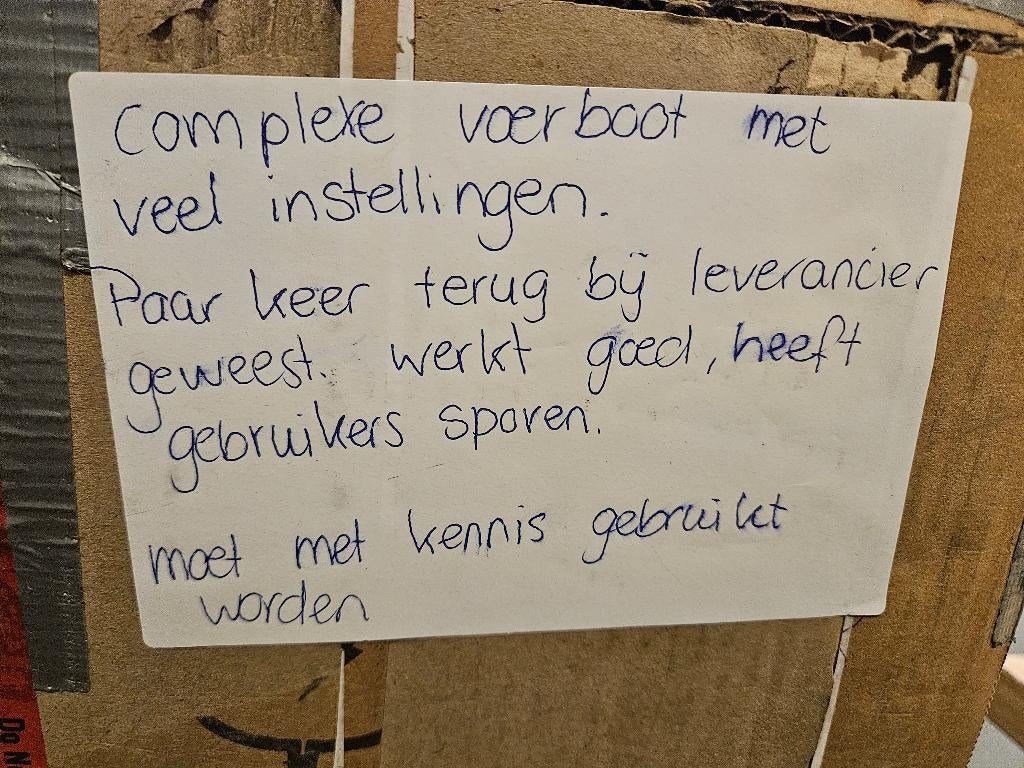 complexe voerboot met
veel instellingen.
Paar keer terug bij leverancier
geweest. werkt goed, heeft
gebruikers sporen.
moet met kennis gebruikt
worden
Do N